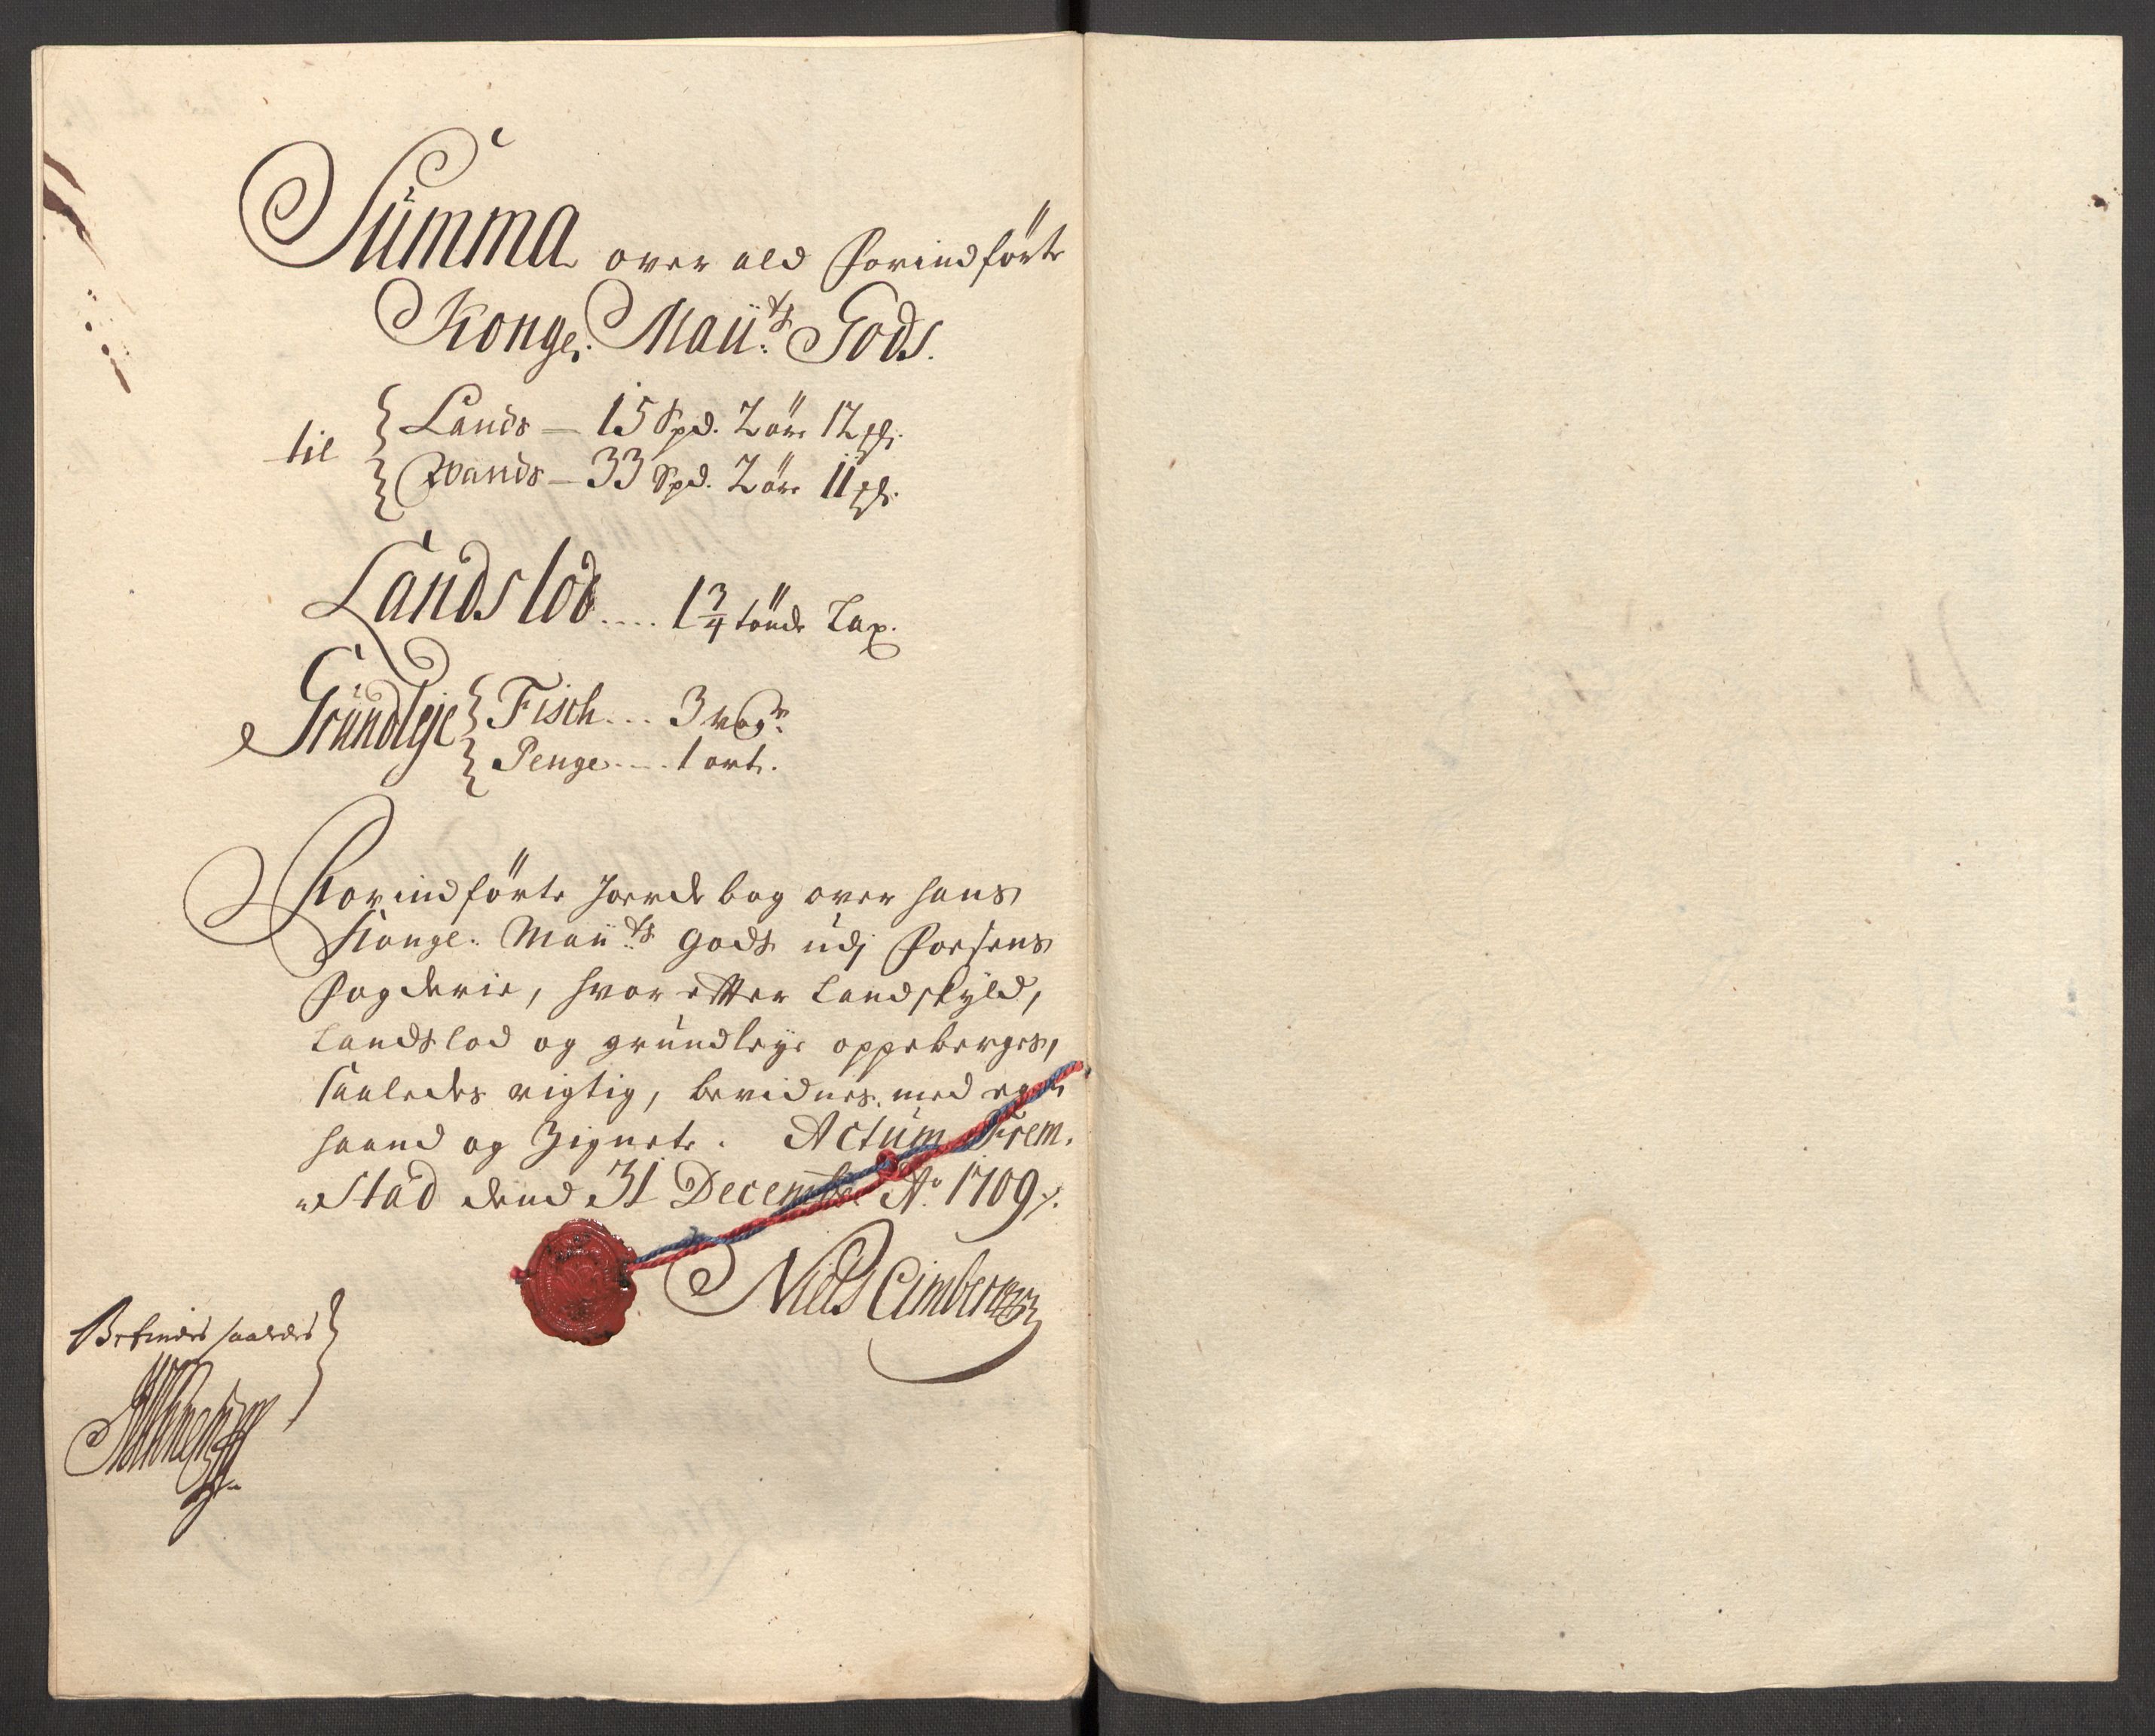 Summa over ald Forindførte
Konge: Maii:ts Gods.
til { Lands — 15 Spd. 2 öre 12 sl:
{ Wands — 33 Spd. 2 öre 11 sl:
Landslod .... 1 3/4 tönde Lax.
Gründleje { Fisch ... 3 wog:r
{ Penge .... 1 ort.
Forindförte Jordebog over hans
Konge: Maii:ts Gods udj Foesens
Fogderie, hvor efter Landskyld,
Landslod og gründleye oppeberges,
saaledes rigtig, bevidnes med egen
haand og Zignete. Actum Frem-
stad dend 31 December Ao 1709 ./.
Niels Cimber
Befindes saaledes }